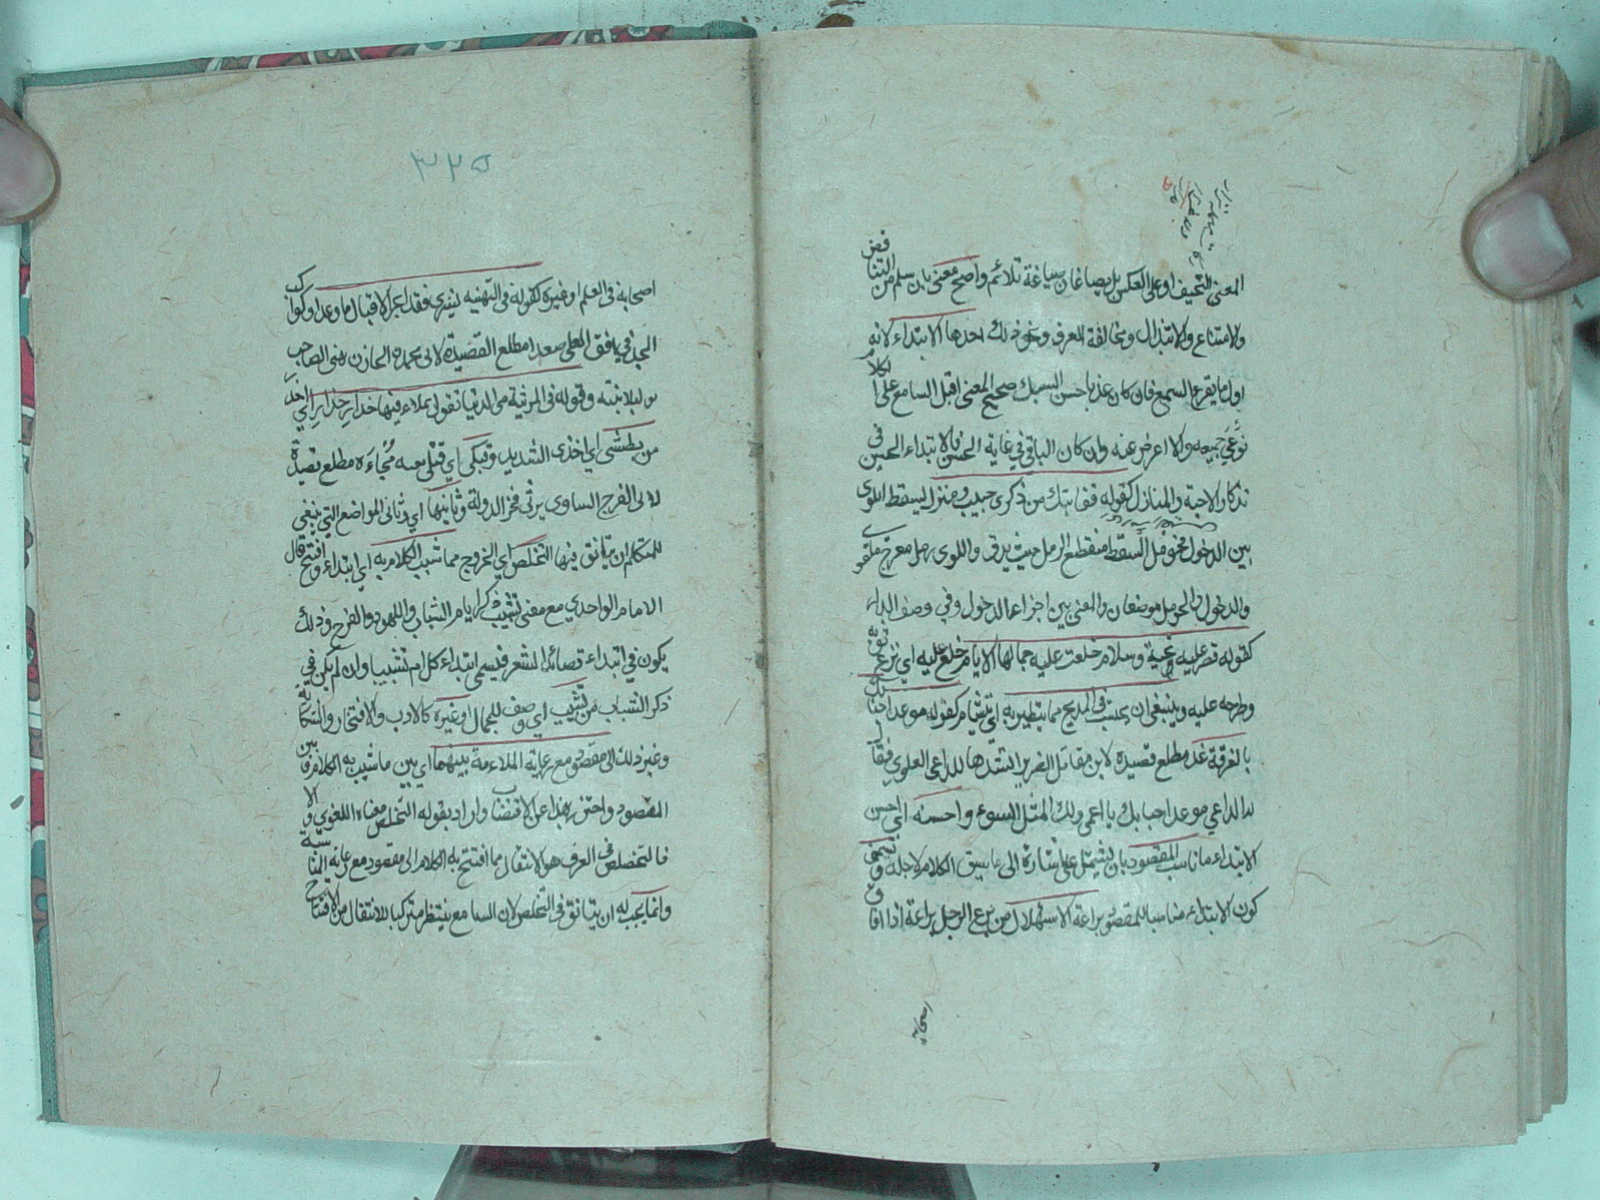 المعنى السخيف او على العكس بل يصاغان صياغة تلائم واصح معنى بان سلم من التناقض
والامتناع والابتذال ومخالفة العرف ونحو ذلك احدها الابتداء لانه
اول ما يقرع السمع فان كان عذبا حسن السبك صحيح المعنى اقبل السامع على الكلام
فوعى جميعه والا اعرض عنه وان كان الباقي في غاية الحسن فالابتداء الحسن في
تذكار الاحبة والمنازل كقوله قفا نبك من ذكرى حبيب ومنزل بسقط اللوى
بين الدخول فحومل السقط منقطع الرمل حيث يدق واللوى رمل معوج ملتوى
والدخول والحومل موضعان والمعنى بين اجزاء الدخول وفي وصف الدار
كقوله قصر عليه تحية وسلام خلعت عليه جمالها الايام خلع عليه اي نزع ثوبه
وطرحه عليه وينبغي ان يجتنب في المديح مما يتطير به اي يتشام كقوله موعد احبابك
بالفرقة غد مطلع قصيدة لابن مقاتل الضرير انشدها للداعى العلوى فقال
له الداعي موعد احبابك يا اعمى ولك المثل السوء واحسنه اي احسن
الابتداء ما ناسب المقصود بان يشتمل على اشارة الى ما سيق الكلام لاجله ويسمى
كون الابتداء مناسبا للمقصود براعة الاستهلال من برع الرجل براعة اذا فاق
اصحابه
٣٢٥
اصحابه في العلم او غيره كقوله في التهنيه بشرى فقد انجز الاقبال ما وعدا وكوكب
المجد في افق العلى صعدا مطلع القصيدة لابى محمد الخازن يهنى الصاحب
بولد لابنته وقوله في المرثية هى الدنيا تقول بملاء فيها حذار حذار اي احذر
من بطشى اي اخذى الشديد وفتكى اي قتلى بغتة فجاءة مطلع قصيدة
لابى الفرج الساوى يرثى فخر الدولة وثانيها اي وثانى المواضع التي ينبغي
للمتكلم ان يتانق فيها التخلص اي الخروج مما شبب الكلام به اي ابتداء وافتتح قال
الامام الواحدي مع معنى تشبيب ذكر ايام الشباب واللهو والفرح وذلك
يكون في ابتداء قصائد الشعر فيسمى ابتداء كل امر تشبيبا وان لم يكن في
ذكر الشباب من تشبيب اي وصف للجمال او غيره كالادب والافتخار والشكاية
وغير ذلك الى مقصود مع رعاية الملاءمة بينهما اي بين ما شبب به الكلام وبين
المقصود واحترز بهذا عن الاقتضاب واراد بقوله التخلص معناه اللغوي والا
فالتخلص في العرف هو الانتقال مما افتتح به الكلام الى مقصود مع رعاية المناسبة
وانما يجب له ان يتانق في التخلص لان السامع ينتظر مترقبا للانتقال من الافتتاح